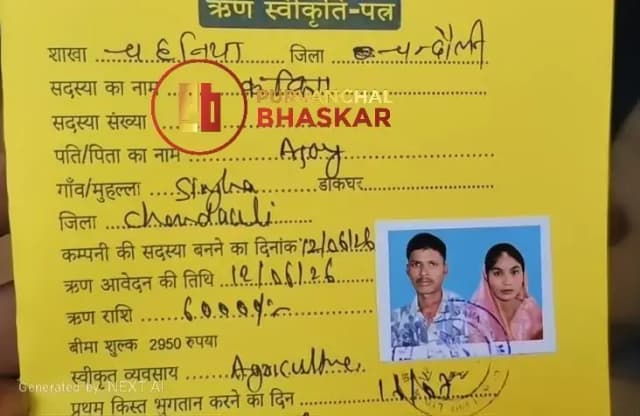 ऋण स्वीकृति-पत्र
शाखा चहनिया जिला चन्दौली
सदस्या का नाम
PURVANCHAL
BHASKAR
सदस्या संख्या
पति/पिता का नाम Ajay
गाँव/मुहल्ला Singha डाकघर
जिला Chandauli
कम्पनी की सदस्या बनने का दिनांक 12/06/26
ऋण आवेदन की तिथि 12/06/26
ऋण राशि 60000/-
बीमा शुल्क 2950 रुपया
स्वीकृत व्यवसाय Agriculture
Generated by NEXT AI
प्रथम किस्त भुगतान करने का दिन